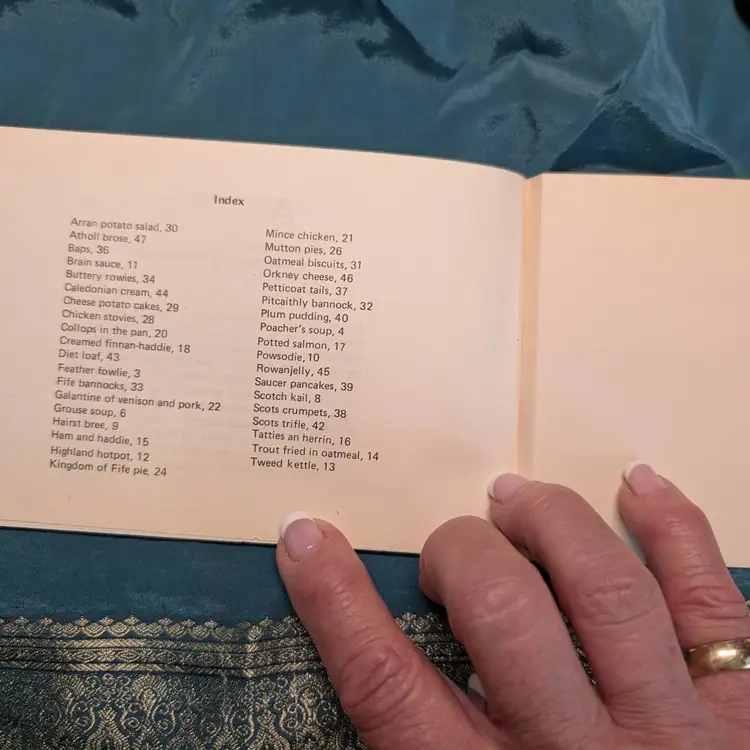 Index
Arran potato salad, 30
Atholl brose, 47
Baps, 36
Brain sauce, 11
Buttery rowies, 34
Caledonian cream, 44
Cheese potato cakes, 29
Chicken stovies, 28
Collops in the pan, 20
Creamed finnan-haddie, 18
Diet loaf, 43
Feather fowlie, 3
Fife bannocks, 33
Galantine of venison and pork, 22
Grouse soup, 6
Hairst bree, 9
Ham and haddie, 15
Highland hotpot, 12
Kingdom of Fife pie, 24
Mince chicken, 21
Mutton pies, 26
Oatmeal biscuits, 31
Orkney cheese, 46
Petticoat tails, 37
Pitcaithly bannock, 32
Plum pudding, 40
Poacher's soup, 4
Potted salmon, 17
Powsodie, 10
Rowanjelly, 45
Saucer pancakes, 39
Scotch kail, 8
Scots crumpets, 38
Scots trifle, 42
Tatties an herrin, 16
Trout fried in oatmeal, 14
Tweed kettle, 13